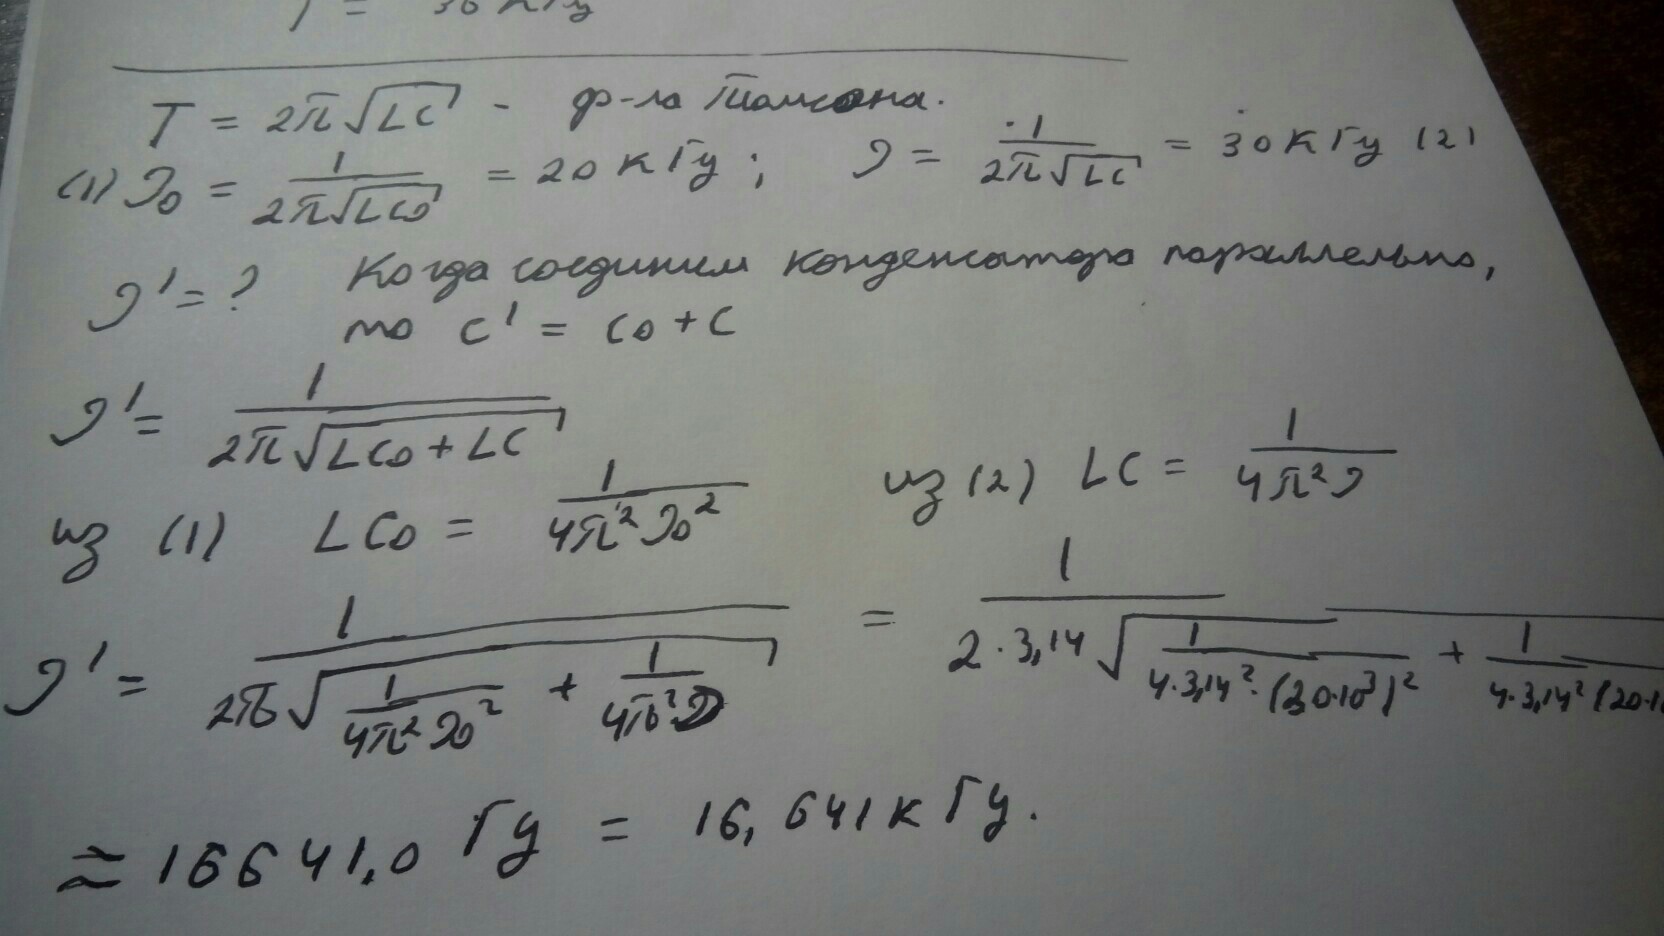 = 30 кГц
T = 2π√LC - ф-ла Томсона.
(1) ν₀ = 1/(2π√LC₀) = 20 кГц ; ν = 1/(2π√LC) = 30 кГц (2)
ν' = ? Когда соединим конденсатора параллельно,
то C' = C₀ + C
ν' = 1/(2π√(LC₀ + LC))
из (1) LC₀ = 1/(4π²ν₀²) из (2) LC = 1/(4π²ν)
ν' = 1/(2π√(1/(4π²ν₀²) + 1/(4π²ν))) = 1/(2·3,14√(1/(4·3,14²·(30·10³)²) + 1/(4·3,14²(20·10
≈ 16641,0 Гц = 16,641 кГц.